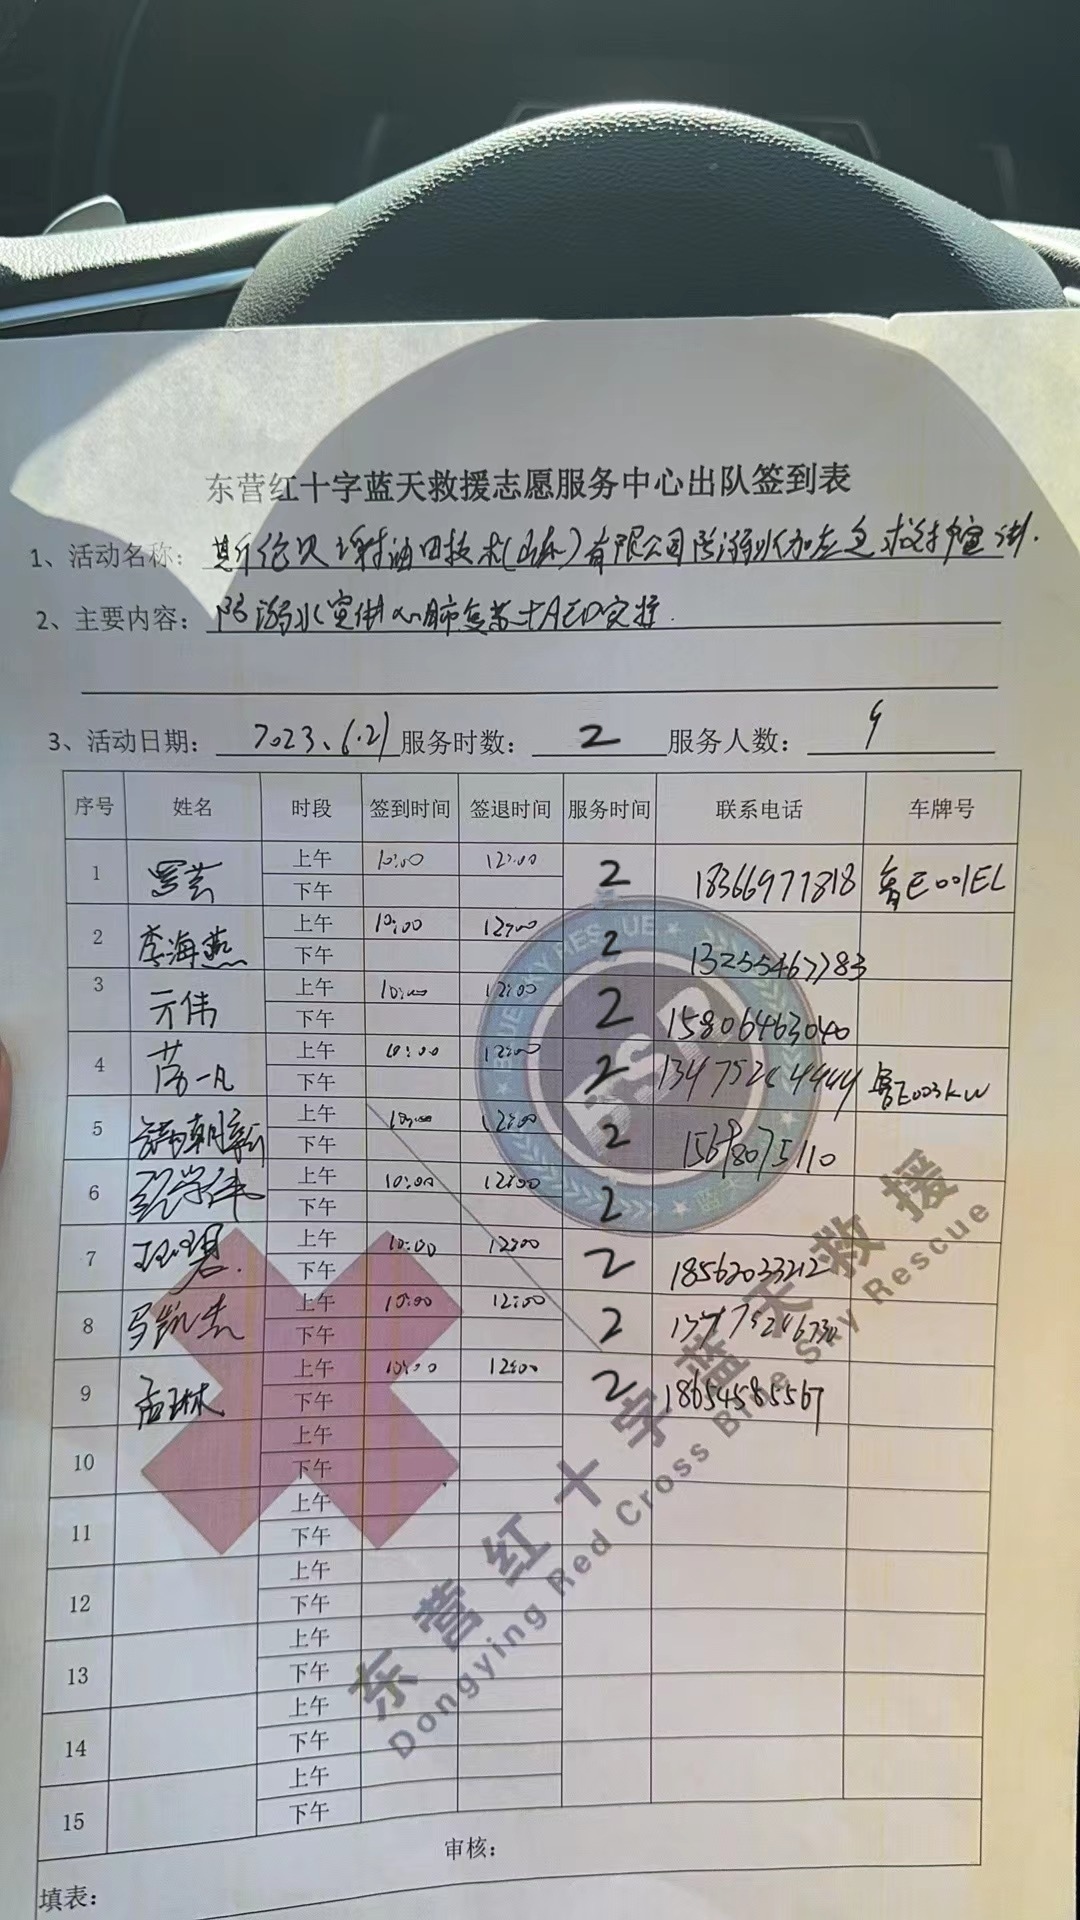 东营红十字蓝天救援志愿服务中心出队签到表
1、活动名称：斯伦贝谢油田技术(山东)有限公司防溺水应急救护宣讲.
2、主要内容：防溺水宣传心肺复苏+AED实操.
3、活动日期：2023.6.21 服务时数：2 服务人数：9
序号 姓名 时段 签到时间 签退时间 服务时间 联系电话 车牌号
1 上午 10:00 12:00 2 18366977818 鲁E001EL
下午
2 李海燕 上午 10:00 12:00 2 13255467783
下午
3 亓伟 上午 10:00 12:00 2 15806463040
下午
4 一凡 上午 10:00 12:00 2 鲁E003KW
下午
5 上午 10:00 12:00 2 15698075110
下午
6 上午 10:00 12:00 2
下午
7 上午 10:00 12:00 2 18562023212
下午
8 马凯杰 上午 10:00 12:00 2
下午
9 孟琳 上午 10:00 12:00 2 18654585567
下午
10 上午
下午
11 上午
下午
12 上午
下午
13 上午
下午
14 上午
下午
15 上午
下午
审核：
填表：
BLUE SKY RESCUE
东营红十字蓝天救援
Dongying Red Cross Blue Sky Rescue